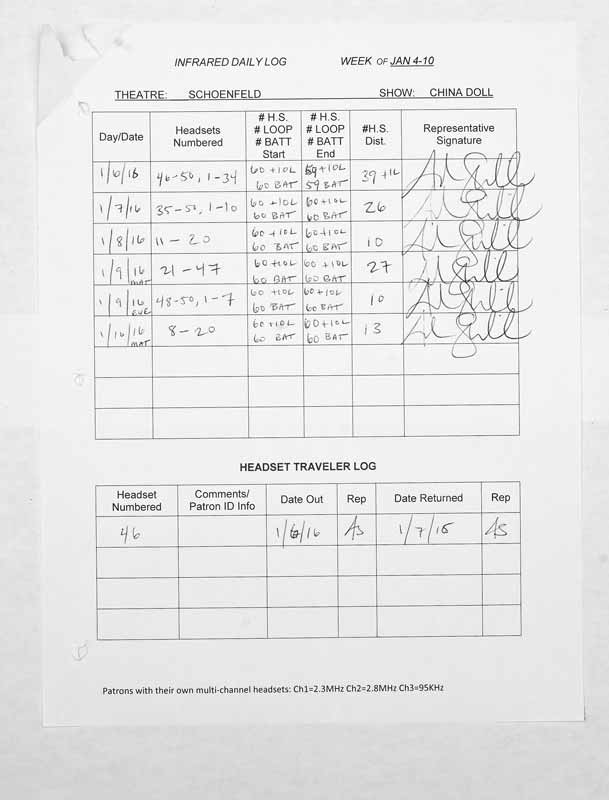 INFRARED DAILY LOG WEEK OF JAN 4-10
THEATRE: SCHOENFELD SHOW: CHINA DOLL
Day/Date Headsets Numbered # H.S. # LOOP # BATT Start # H.S. # LOOP # BATT End #H.S. Dist. Representative Signature
1/6/16 46-50, 1-34 60 +10L 60 BAT 59 +10L 59 BAT 39 +1L
1/7/16 35-50, 1-10 60 +10L 60 BAT 60 +10L 60 BAT 26
1/8/16 11-20 60 +10L 60 BAT 60 +10L 60 BAT 10
1/9/16 MAT 21-47 60 +10L 60 BAT 60 +10L 60 BAT 27
1/9/16 EVE 48-50, 1-7 60 +10L 60 BAT 60 +10L 60 BAT 10
1/10/16 MAT 8-20 60 +10L 60 BAT 60 +10L 60 BAT 13
HEADSET TRAVELER LOG
Headset Numbered Comments/ Patron ID Info Date Out Rep Date Returned Rep
46 1/6/16 AS 1/7/16 AS
Patrons with their own multi-channel headsets: Ch1=2.3MHz Ch2=2.8MHz Ch3=95KHz